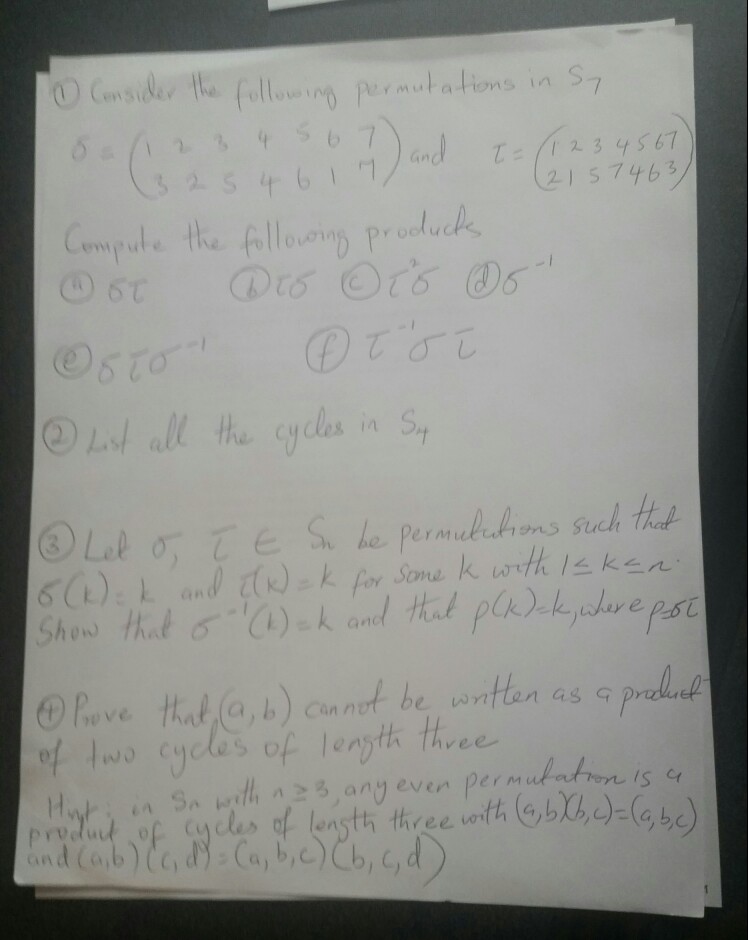 ① Consider the following permutations in S₇
σ = (1 2 3 4 5 6 7
3 2 5 4 6 1 7) and τ = (1 2 3 4 5 6 7
2 1 5 7 4 6 3)
Compute the following products
ⓐ στ ⓑ τσ ⓒ τ²σ ⓓ σ⁻¹
ⓔ στσ⁻¹ ⓕ τ⁻¹στ
② List all the cycles in S₄
③ Let σ, τ ∈ Sₙ be permutations such that
σ(k)=k and τ(k)=k for some k with 1≤k≤n.
Show that σ⁻¹(k)=k and that ρ(k)=k, where ρ=στ
④ Prove that, (a,b) cannot be written as a product
of two cycles of length three
Hint: in Sₙ with n≥3, any even permutation is a
product of cycles of length three with (a,b)(b,c)=(a,b,c)
and (a,b)(c,d)=(a,b,c)(b,c,d)